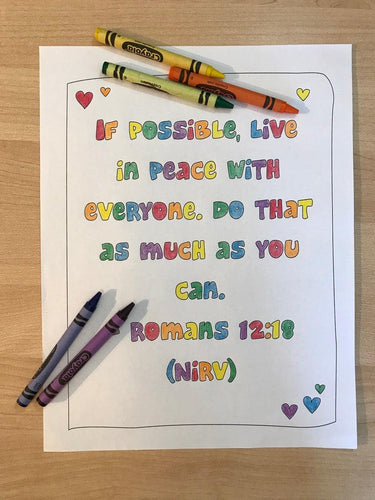 Crayola
IF POSSIBLE, Live
in Peace With
everyone. DO THAT
as much as you
can.
Romans 12:18
(NiRV)
Crayola